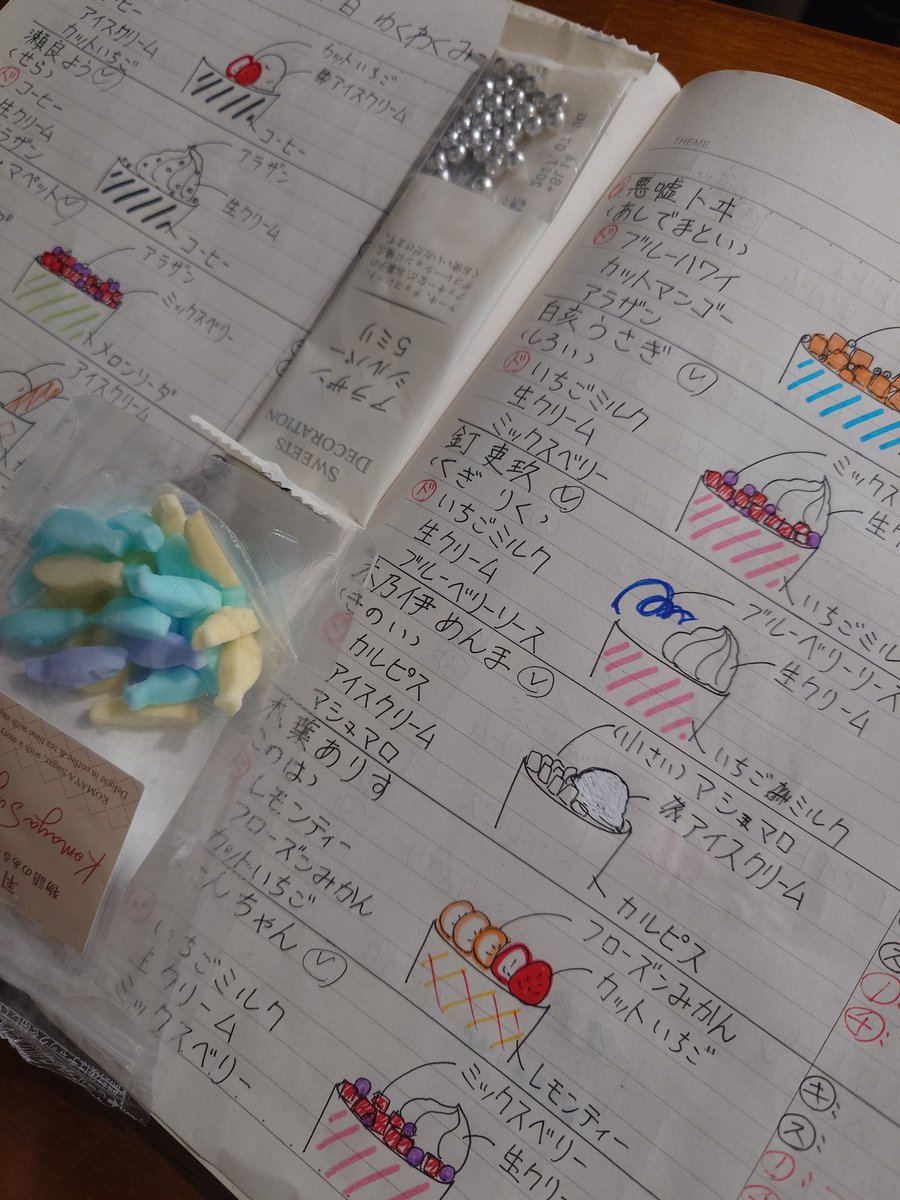 日 わくわくみ
コーヒー
アイスクリーム
カットいちご
瀬良よう
(せら)
ド コーヒー
生クリーム
アラザン
マペット
カットいちご
アイスクリーム
コーヒー
アラザン
生クリーム
コーヒー
アラザン
ミックスベリー
メロンソーダ
アイスクリーム
アラザン
シルバー
5ミリ
SWEETS
DECORATION
THEME
悪嘘トヰ
(あしでまとい)
ド ブルーハワイ
カットマンゴー
アラザン
白亥うさぎ
(しろい)
ド いちごミルク
生クリーム
ミックスベリー
ミックス
生ク
いちごミル
釘 吏玖
(くぎ りく)
ド いちごミルク
生クリーム
ブルーベリーソース
ブルーベリーソース
生クリーム
いちごミルク
木乃伊めんま
(きのい)
カルピス
アイスクリーム
マシュマロ
(小さい)マシュマロ
アイスクリーム
カルピス
葉ありす
このは)
レモンティー
フローズンみかん
カットいちご
フローズンみかん
カットいちご
レモンティー
んちゃん
いちごミルク
生クリーム
ミックスベリー
ミックスベリー
生クリ
ス
キ:
ス:
KOMAYA Sugar, with a story
Delight in coffee & tea time with sug
Komaya Su
物語のある